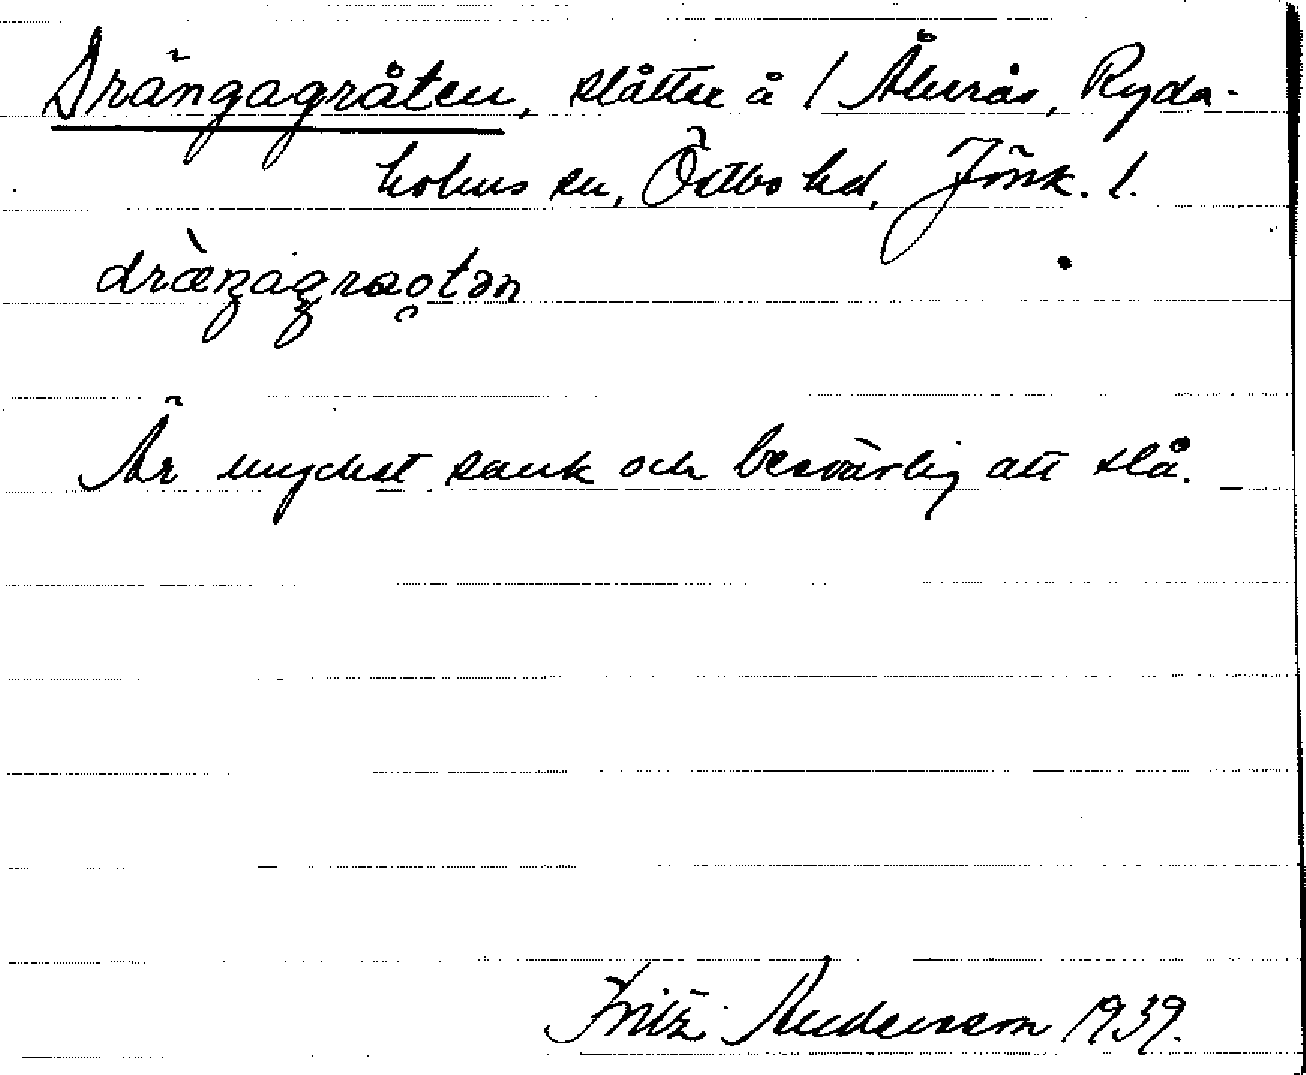 Drängagråten, slåtter å 1 Älmås, Ryda-
holms sn, Östbo hd, Jönk. l.
dræ̀ŋagraotən
Är mycket sank och besvärlig att slå.
Fritz Andersson 1939.